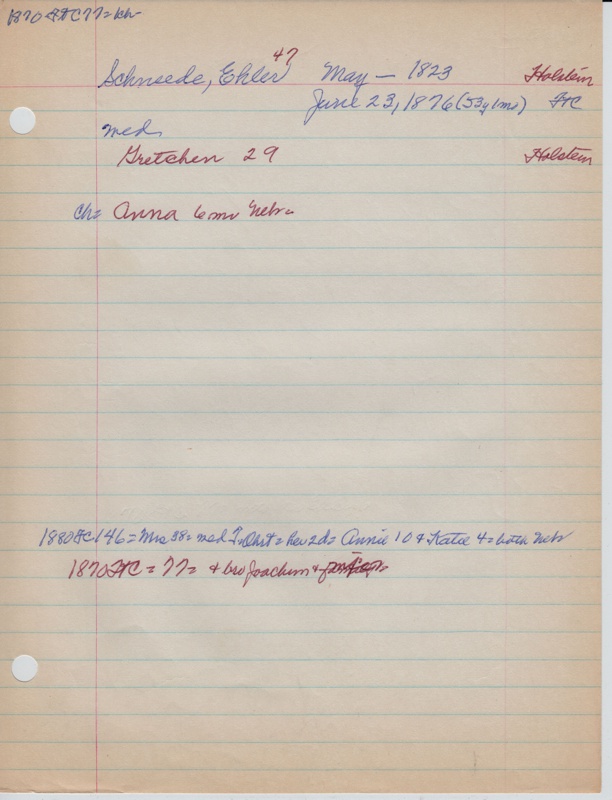 1870 FTC 77=
47
Schnsede, Ehler May — 1823 Holstein
June 23, 1876 (53y 1mo) FTC
med
Gretchen 29 Holstein
ch= Anna 6 mo Nebr
1880 FTC 146 = Mrs 38 = med = her 2d = Annie 10 & Katie 4 = both Nebr
1870 FTC = 77 = & bro Joachim &